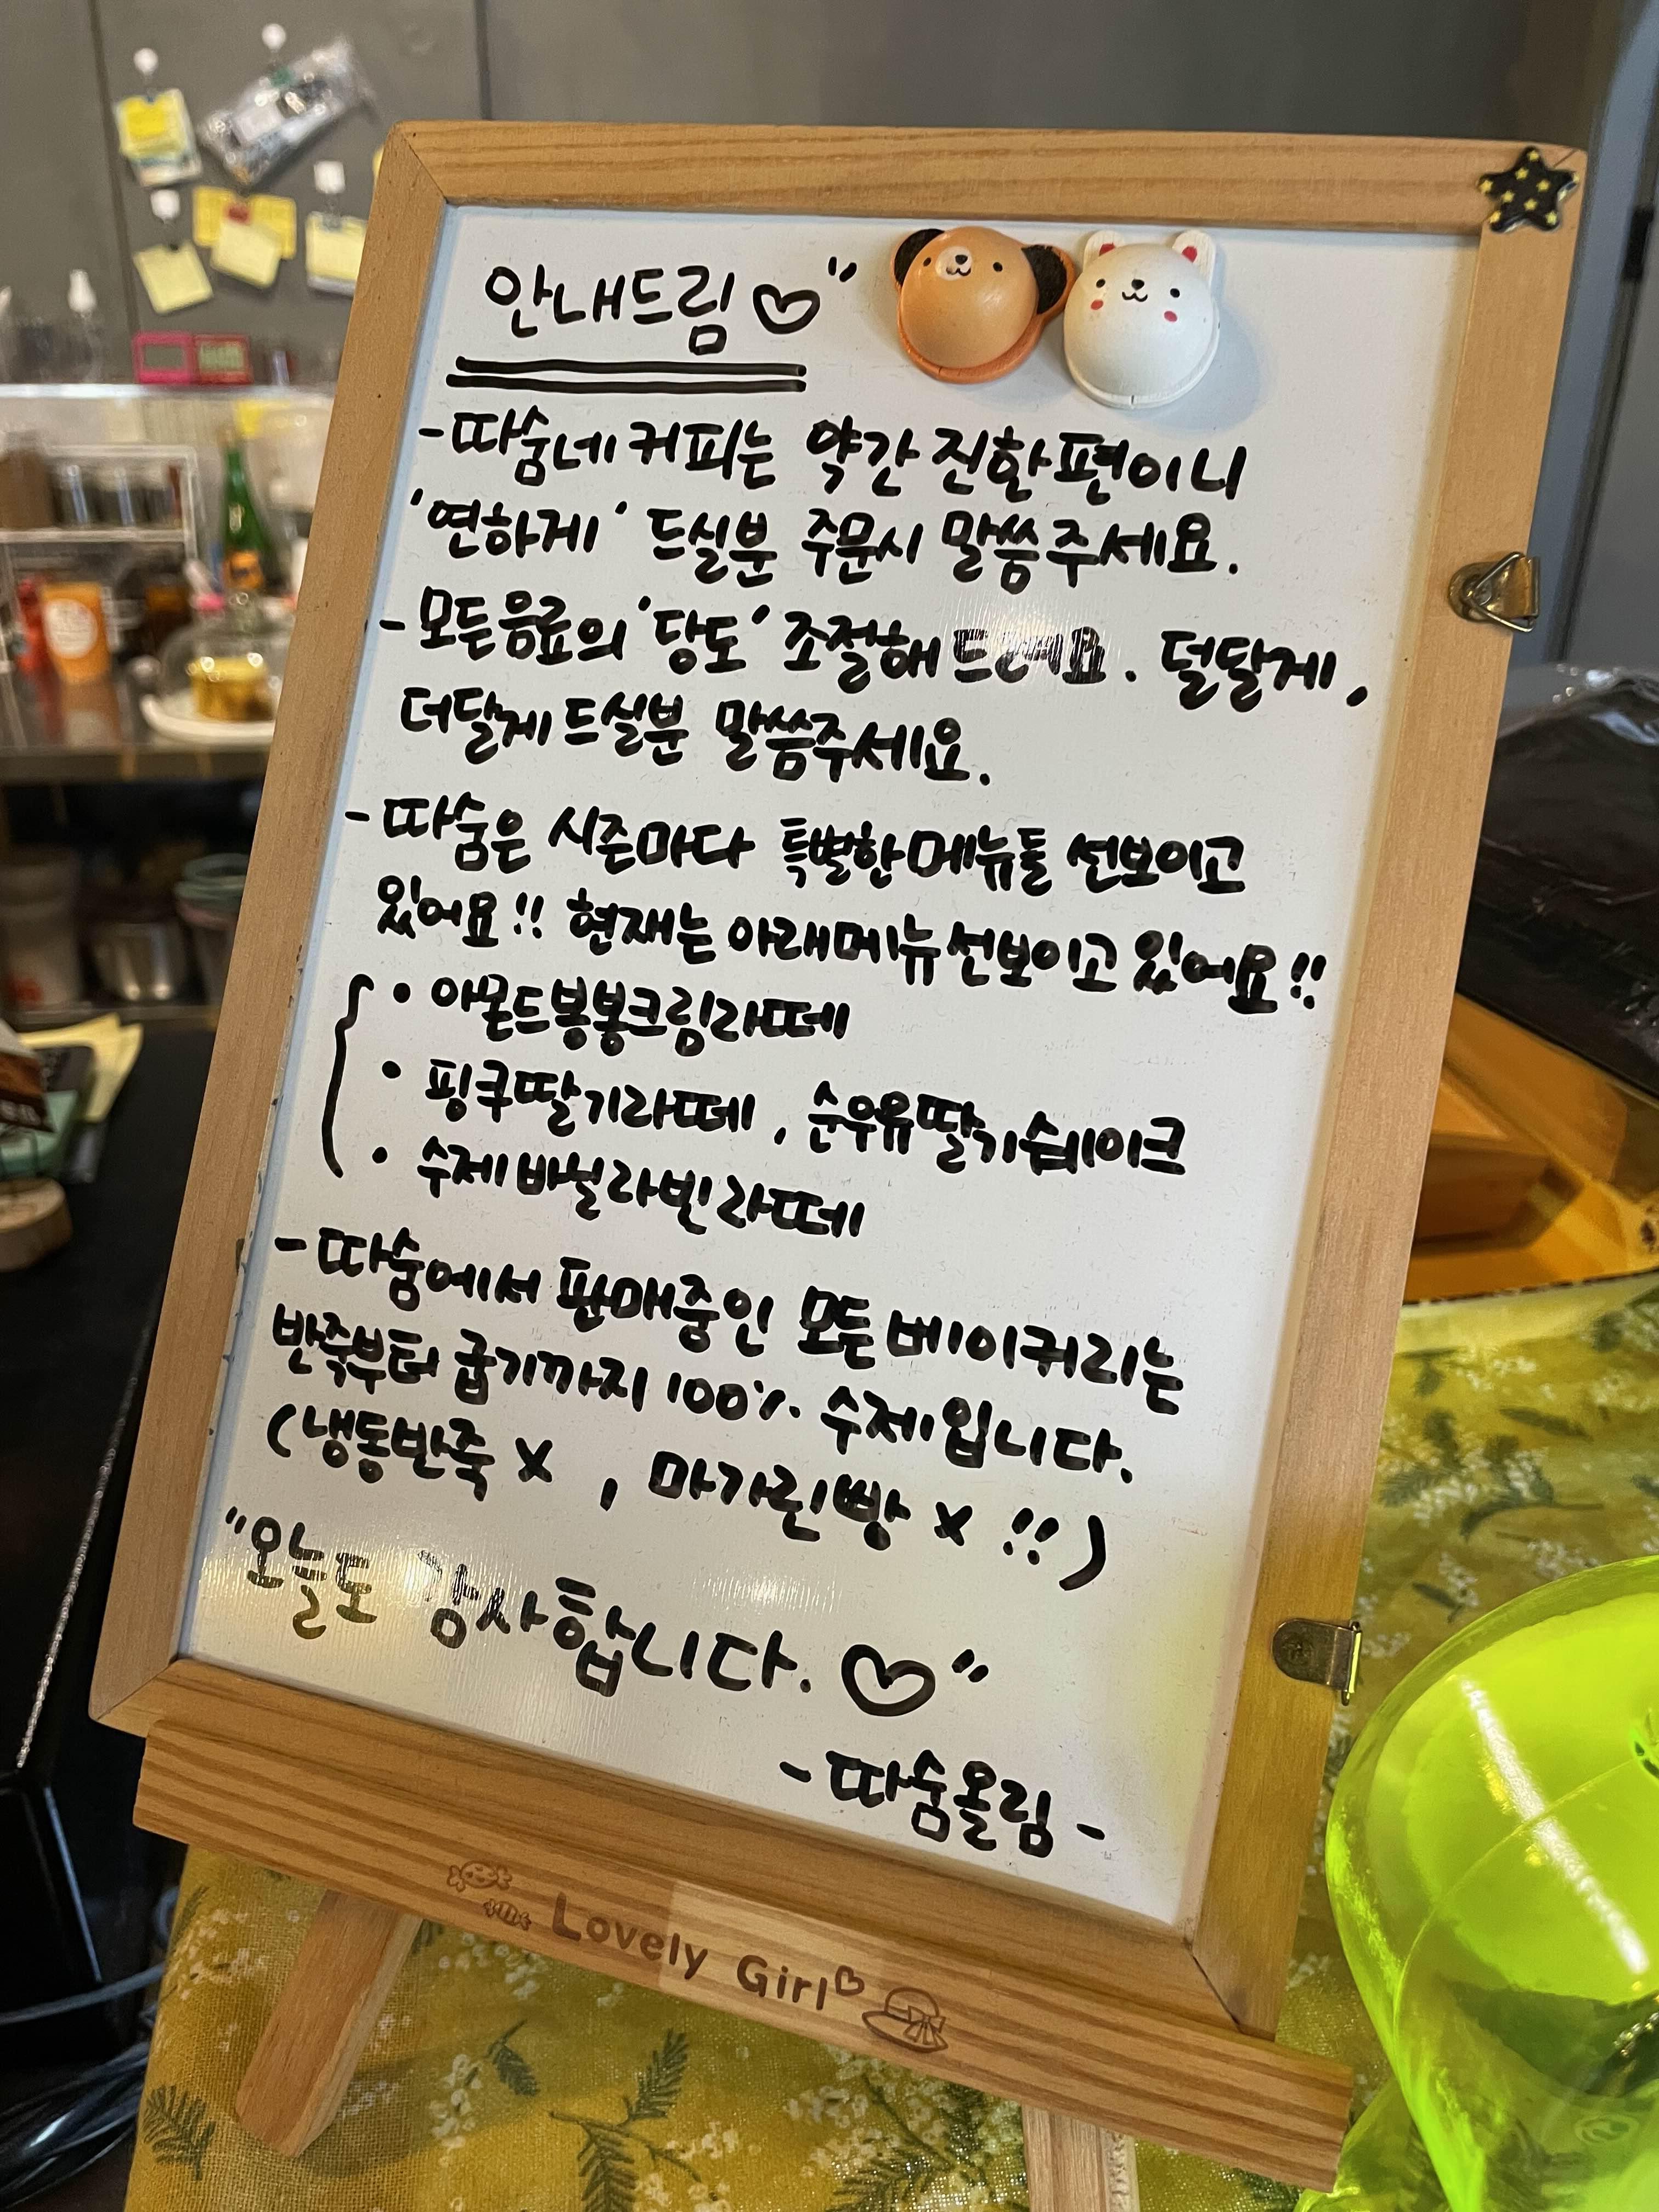 안내드림♡"
-따숨네 커피는 약간 진한편이니
'연하게' 드실분 주문시 말씀주세요.
-모든음료의 '당도' 조절해드려요. 덜달게,
더달게 드실분 말씀주세요.
-따숨은 시즌마다 특별한메뉴들 선보이고
있어요!! 현재는 아래메뉴선보이고 있어요!!
• 아몬드봉봉크림라떼
• 핑쿠딸기라떼, 순우유딸기쉐이크
• 수제바닐라빈라떼
-따숨에서 판매중인 모든베이커리는
반죽부터 굽기까지 100% 수제입니다.
(냉동반죽 x , 마가린빵 x !!)
"오늘도 감사합니다.♡"
-따숨올림-
Lovely Girl♡